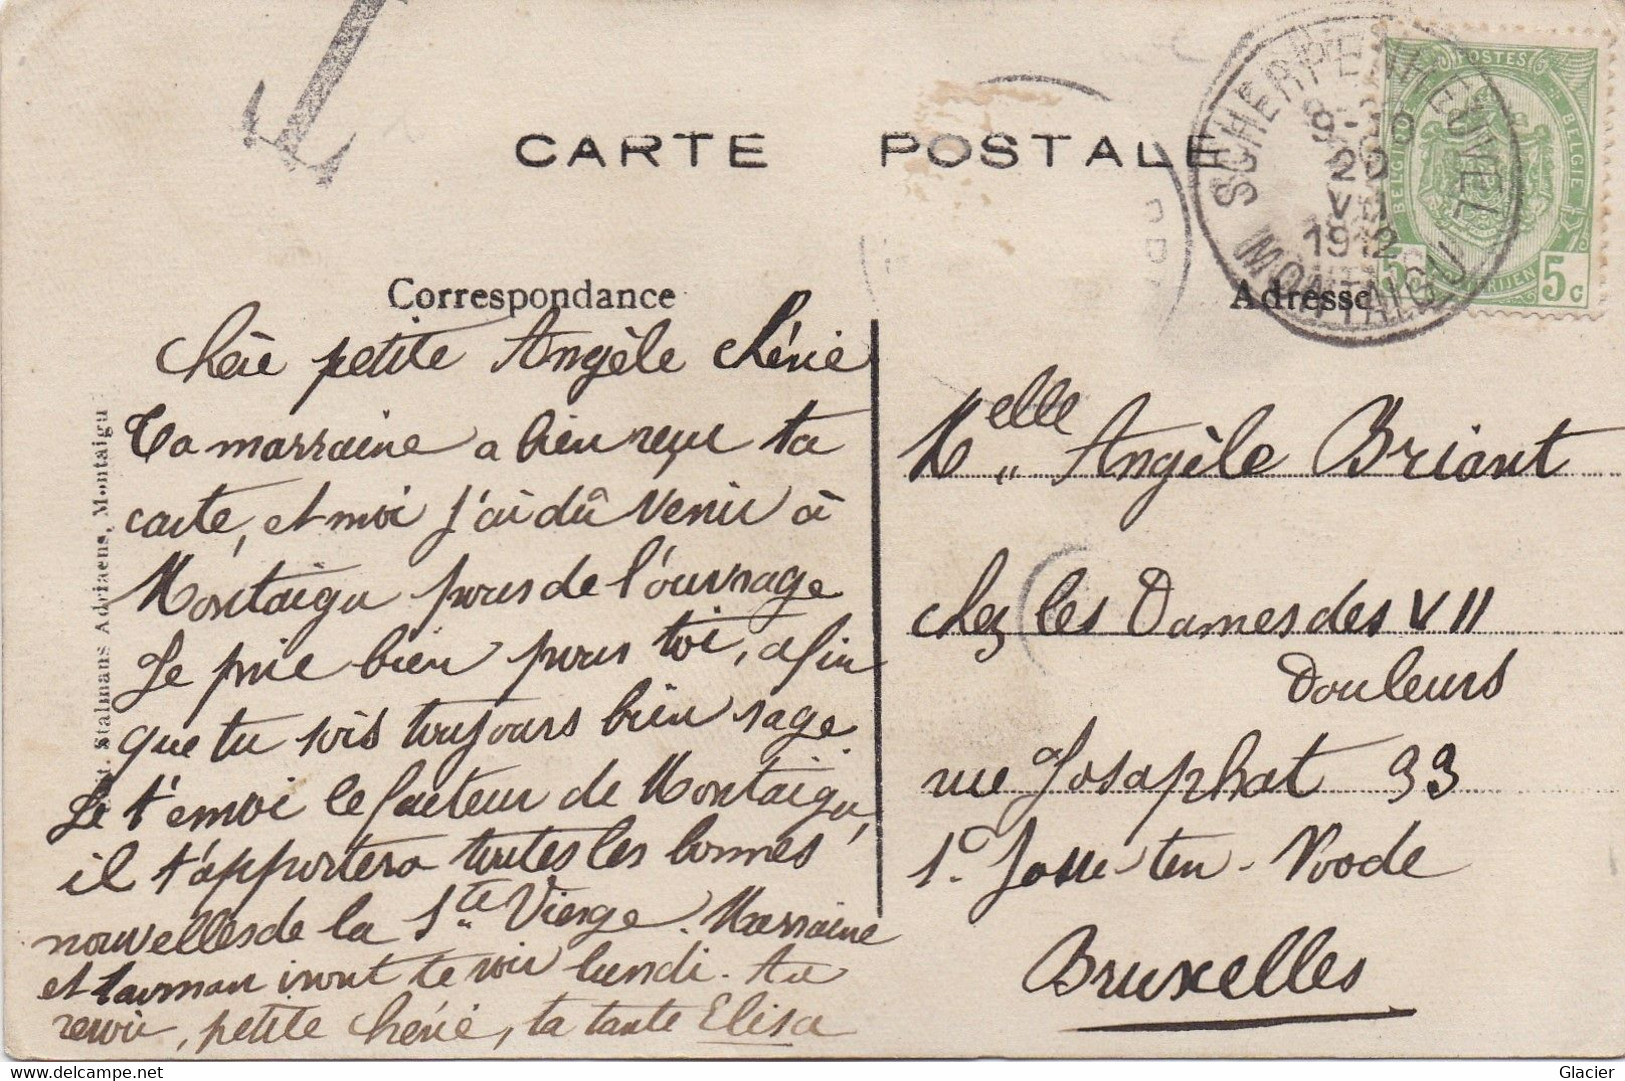 CARTE POSTALE
SCHERPENHEUVEL
9-10
20
VII
1912
MONTAIGU
POSTES
BELGIQUE
BELGIE
5c
Correspondance
Adresse
Chère petite Angèle chérie
Ta marraine a bien reçu ta
carte, et moi j'ai dû venir à
Montaigu pour de l'ouvrage
Je prie bien pour toi, afin
que tu sois toujours bien sage.
Je t'emoi le facteur de Montaigu,
il t'apportera toutes les bonnes
nouvelles de la Ste Vierge. Marraine
et iront te voir lundi. Au
revoir, petite chérie, ta tante Elisa
Stalmans Adriaens, Montaigu
Melle Angèle Briant
chez les Dames des VII
Douleurs
rue Josaphat 33
St. Josse-ten-Noode
Bruxelles
Glacier
delcampe.net